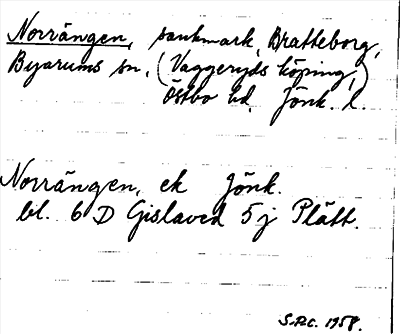 Norrängen, sankmark, Bratteborg,
Byarums sn. (Vaggeryds köping,)
Östbo hd. Jönk. l.
Norrängen, ek Jönk.
bl. 6 D Gislaved 5 j Plätt.
S.P.C. 1958.